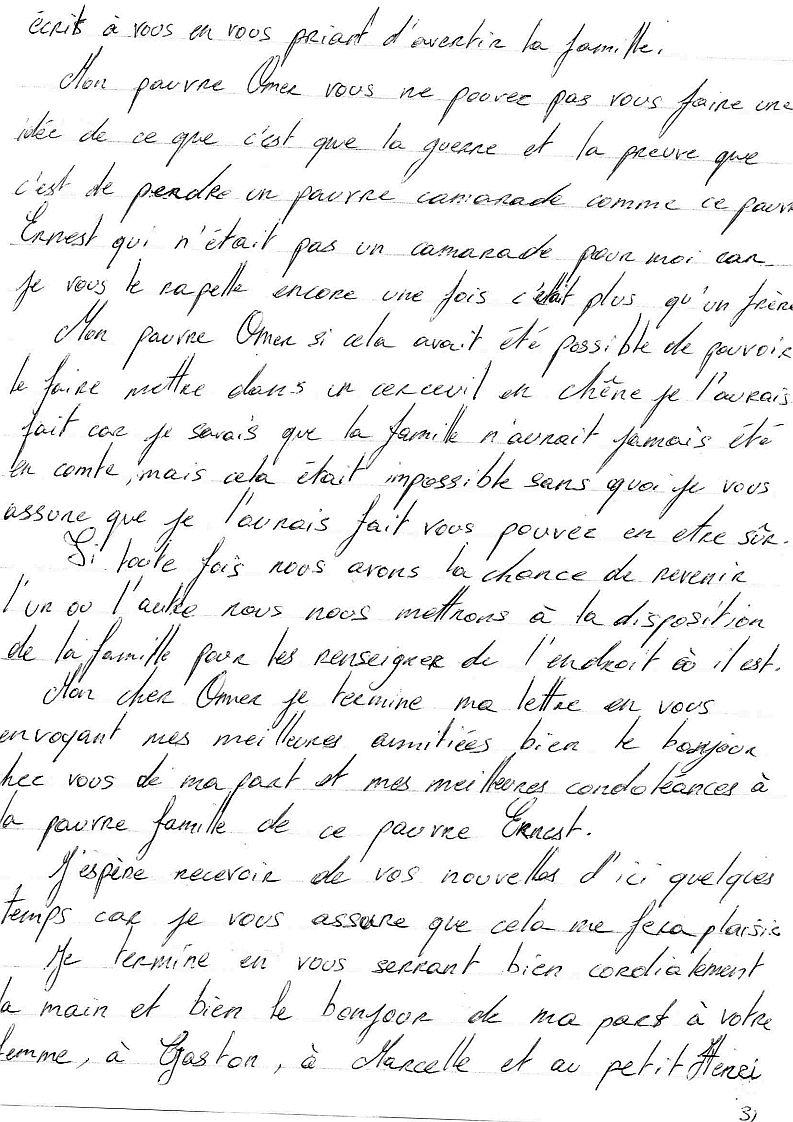 écrit à vous en vous priant d'avertir la famille.
Mon pauvre Omer vous ne pouvez pas vous faire une
idée de ce que c'est que la guerre et la preuve que
c'est de perdre un pauvre camarade comme ce pauvr
Ernest qui n'était pas un camarade pour moi car
je vous le rapelle encore une fois c'était plus qu'un frère
Mon pauvre Omer si cela avait été possible de pouvoir
le faire mettre dans un cerceuil en chêne je l'aurais
fait car je savais que la famille n'aurait jamais été
en comte, mais cela était impossible sans quoi je vous
assure que je l'aurais fait vous pouvez en etre sûr.
Si toute fois nous avons la chance de revenir
l'un ou l'autre nous nous mettrons à la disposition
de la famille pour les renseigner de l'endroit où il est.
Mon cher Omer je termine ma lettre en vous
envoyant mes meilleures amitiées bien le bonjour
hez vous de ma part et mes meilleures condoléances à
la pauvre famille de ce pauvre Ernest.
J'espère recevoir de vos nouvelles d'ici quelques
temps car je vous assure que cela me fera plaisir
Je termine en vous serrant bien cordialement
la main et bien le bonjour de ma part à votre
femme, à Gaston, à Marcelle et au petit Henri
3)